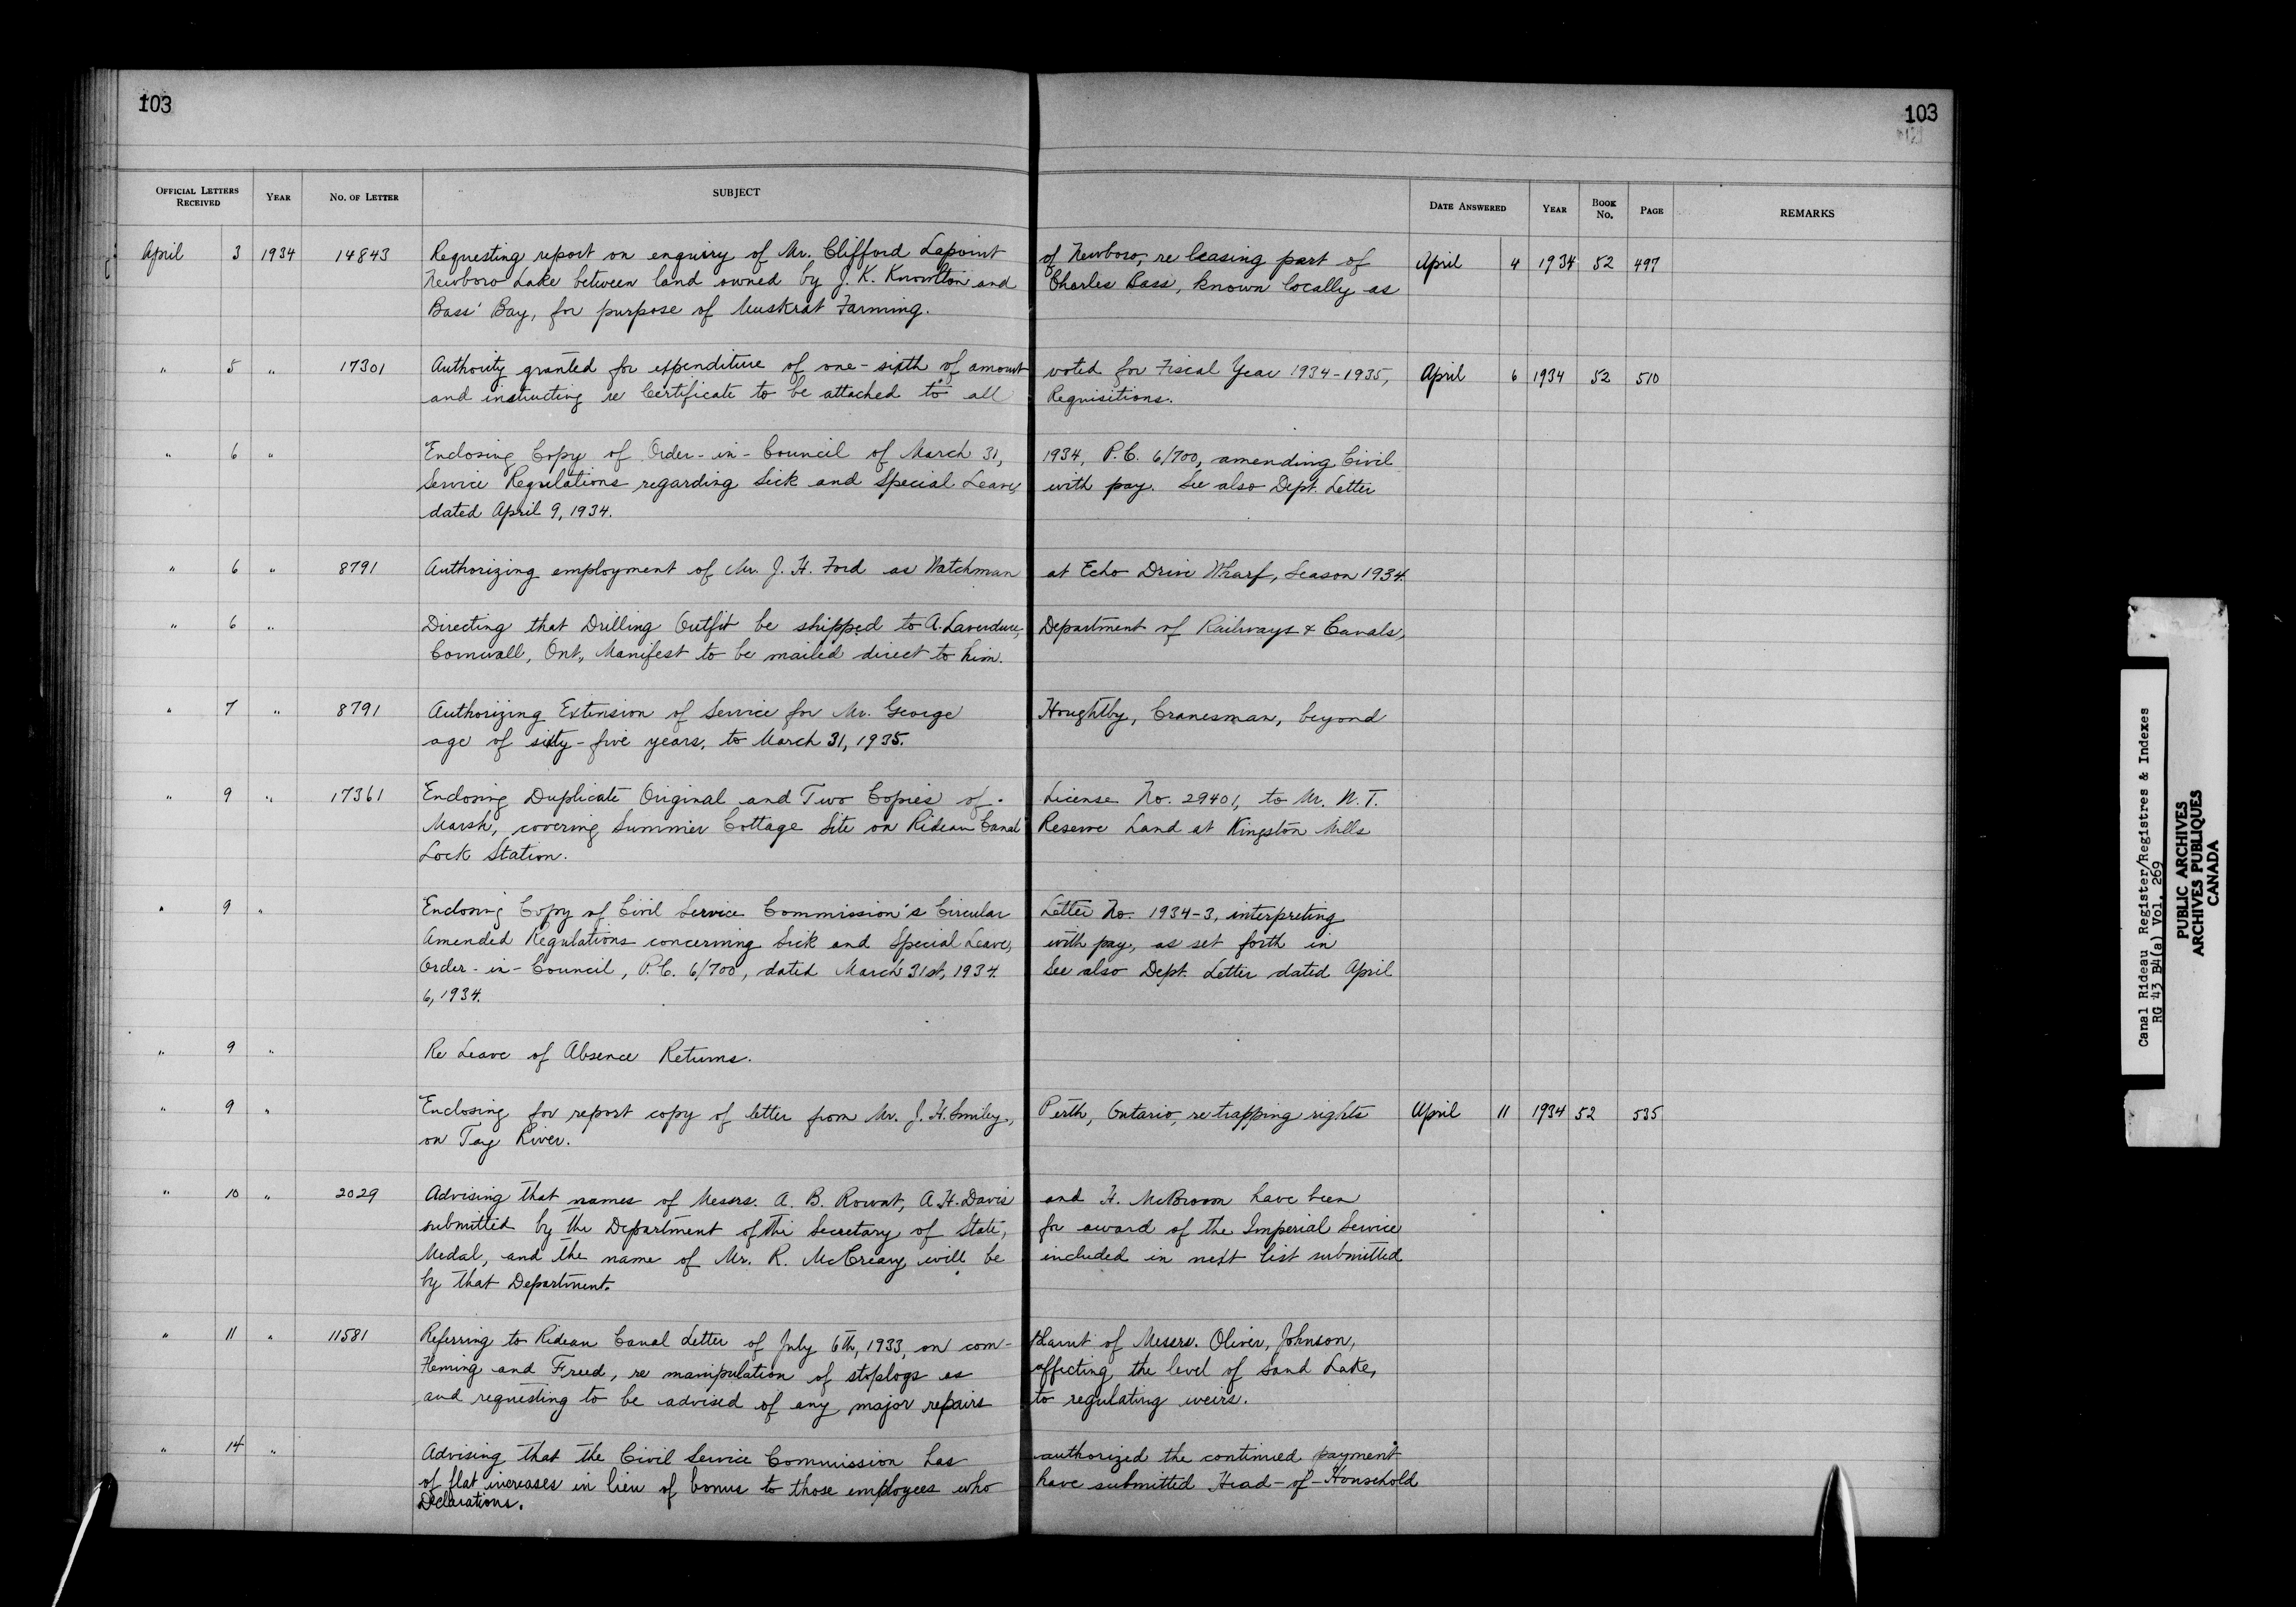 103
103
OFFICIAL LETTERS RECEIVED YEAR NO. OF LETTER SUBJECT DATE ANSWERED YEAR BOOK No. PAGE REMARKS
April 3 1934 14843 Requesting report on enquiry of Mr. Clifford Lapoint of Newboro, re leasing part of April 4 1934 52 497
Newboro Lake between land owned by J. K. Knowlton and Charles Bass, known locally as
Bass' Bay, for purpose of Muskrat Farming.
" 5 " 17301 Authority granted for expenditure of one-sixth of amount voted for Fiscal Year 1934-1935, April 6 1934 52 510
and instructing re Certificate to be attached to all Requisitions.
" 6 " Enclosing Copy of Order-in-Council of March 31, 1934, P.C. 6/700, amending Civil
Service Regulations regarding Sick and Special Leave, with pay. See also Dept. Letter
dated April 9, 1934.
" 6 " 8791 Authorizing employment of Mr. J. H. Ford as Watchman at Echo Drive Wharf, Season 1934.
" 6 " Directing that Drilling Outfit be shipped to A. Laverdure, Department of Railways & Canals,
Cornwall, Ont., Manifest to be mailed direct to him.
" 7 " 8791 Authorizing Extension of Service for Mr. George Houghtby, Cranesman, beyond
age of sixty-five years, to March 31, 1935.
" 9 " 17361 Enclosing Duplicate Original and Two Copies of License No. 29401, to Mr. N. T.
Marsh, covering Summer Cottage Site on Rideau Canal Reserve Land at Kingston Mills
Lock Station.
" 9 " Enclosing Copy of Civil Service Commission's Circular Letter No. 1934-3, interpreting
Amended Regulations concerning Sick and Special Leave, with pay, as set forth in
Order-in-Council, P.C. 6/700, dated March 31st, 1934. See also Dept. Letter dated April
6, 1934.
" 9 " Re Leave of Absence Returns.
" 9 " Enclosing for report copy of letter from Mr. J. H. Smiley, Perth, Ontario, re trapping rights April 11 1934 52 535
on Tay River.
" 10 " 2029 Advising that names of Messrs. A. B. Rowat, A. H. Davis and H. McBroom have been
submitted by the Department of the Secretary of State, for award of the Imperial Service
Medal, and the name of Mr. R. McCreary will be included in next list submitted
by that Department.
" 11 " 11581 Referring to Rideau Canal Letter of July 6th, 1933, on com-plaint of Messrs. Oliver, Johnson,
Fleming and Freed, re manipulation of stoplogs as affecting the level of Sand Lake,
and requesting to be advised of any major repairs to regulating weirs.
" 14 " Advising that the Civil Service Commission has authorized the continued payment
of flat increases in lieu of bonus to those employees who have submitted Head-of-Household
Declarations.
Canal Rideau Register/Registres & Indexes
RG 43 B4(a) Vol. 269
PUBLIC ARCHIVES
ARCHIVES PUBLIQUES
CANADA